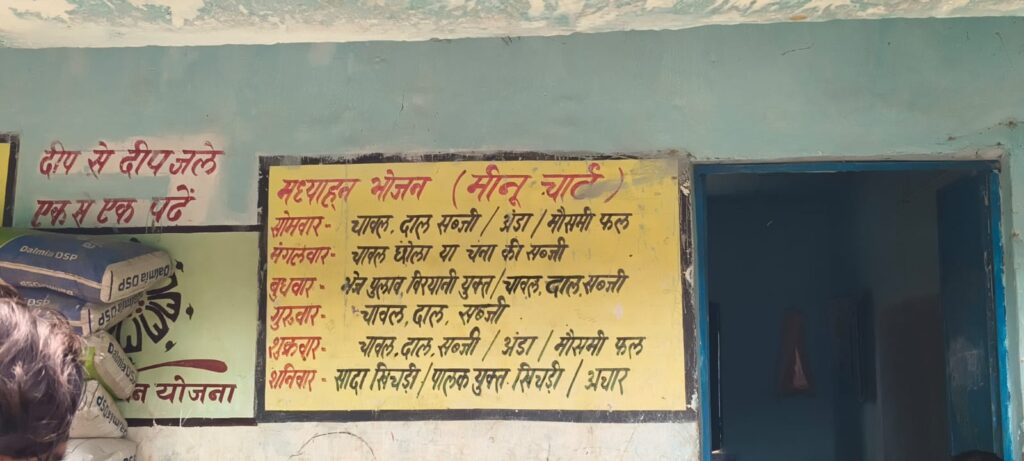 दीप से दीप जले
एक स एक पढें
मध्याहन भोजन (मीनू चार्ट)
सोमवार - चावल, दाल सब्जी / अंडा / मौसमी फल
मंगलवार - चावल छोला या चना की सब्जी
बुधवार - भेज पुलाव, विरयानी युक्त / चावल, दाल, सब्जी
गुरूवार - चावल, दाल, सब्जी
शुक्रवार - चावल, दाल, सब्जी / अंडा / मौसमी फल
शनिवार - सादा खिचड़ी / पालक युक्त खिचड़ी / अचार
Dalmia DSP
Dalmia DSP
न योजना